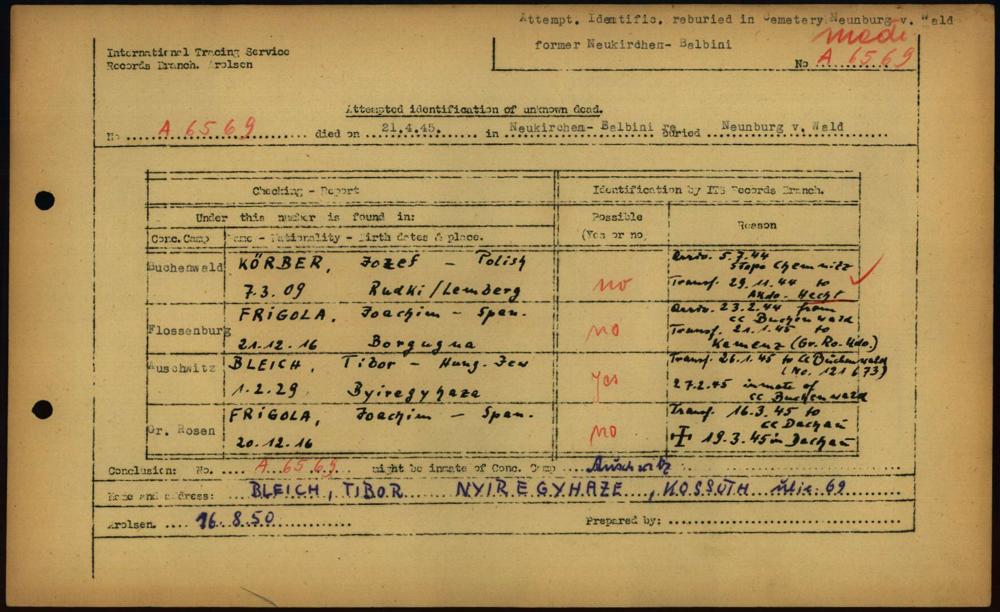 Attempt. Identific. reburied in Cemetery Neunburg v. Wald
former Neukirchen- Balbini
made
No A 6569
International Tracing Service
Records Branch. Arolsen
Attempted identification of unknown dead.
No A 6569 died on 21.4.45. in Neukirchen- Balbini re buried Neunburg v. Wald
Checking - Report
Identification by ITS Records Branch.
Under this number is found in:
Possible
(Yes or no)
Reason
Conc. Camp
Name - Nationality - Birth dates & place.
Buchenwald
KÖRBER, Jozef - Polish
7.3.09 Rudki/Lemberg
no
Arriv. 5.7.44
Stapo Chemnitz
Transf. 29.11.44 to
AKdo. Hecht
Flossenburg
FRIGOLA, Joachim - Span.
21.12.16 Borgugna
no
Arriv. 23.2.44 from
cc Buchenwald
Transf. 21.1.45 to
Kamenz (Gr. Ro. Kdo.)
Auschwitz
BLEICH, Tibor - Hung. Jew
1.2.29 Byiregyhaza
yes
Transf. 26.1.45 to cc Buchenwald
(No. 121673)
27.2.45 inmate of
cc Buchenwald
Gr. Rosen
FRIGOLA, Joachim - Span.
20.12.16
no
Transf. 16.3.45 to
cc Dachau
19.3.45 in Dachau
Conclusion: No. A 6569 might be inmate of Conc. Camp Auschwitz
Name and address: BLEICH, TIBOR NYIREGYHAZE, KOSSUTH 69
Arolsen 16.8.50 Prepared by: